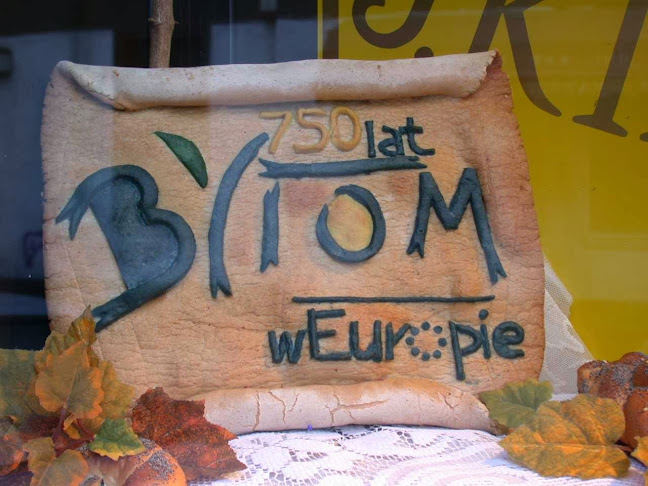 750 lat
BYTOM
wEuropie